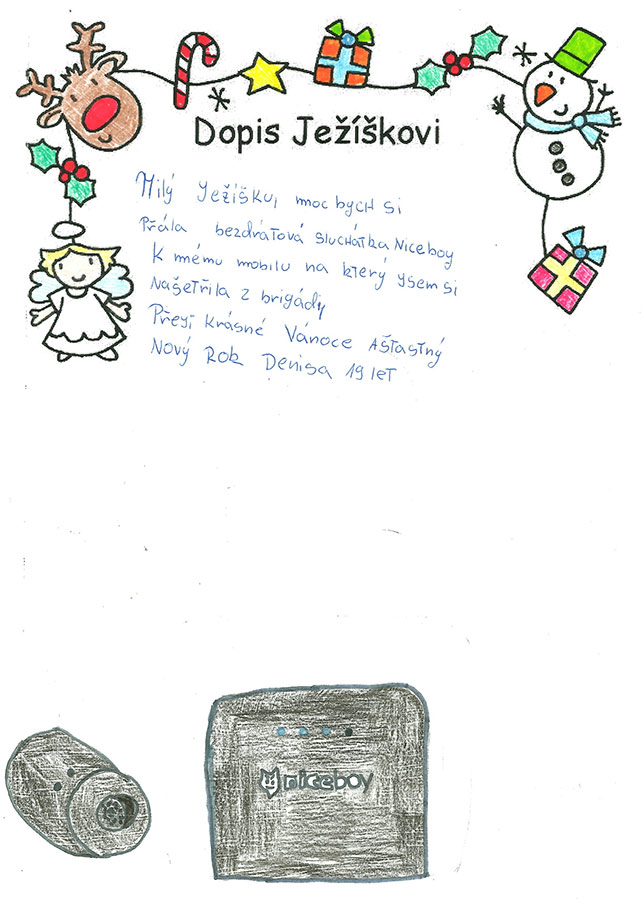 Dopis Ježíškovi
Milý Ježíšku, moc bych si
Přála bezdrátová sluchátka Niceboy
K mému mobilu na který jsem si
Našetřila z brigády
Přeji Krásné Vánoce Ašťastný
Nový Rok Denisa 19 let
niceboy